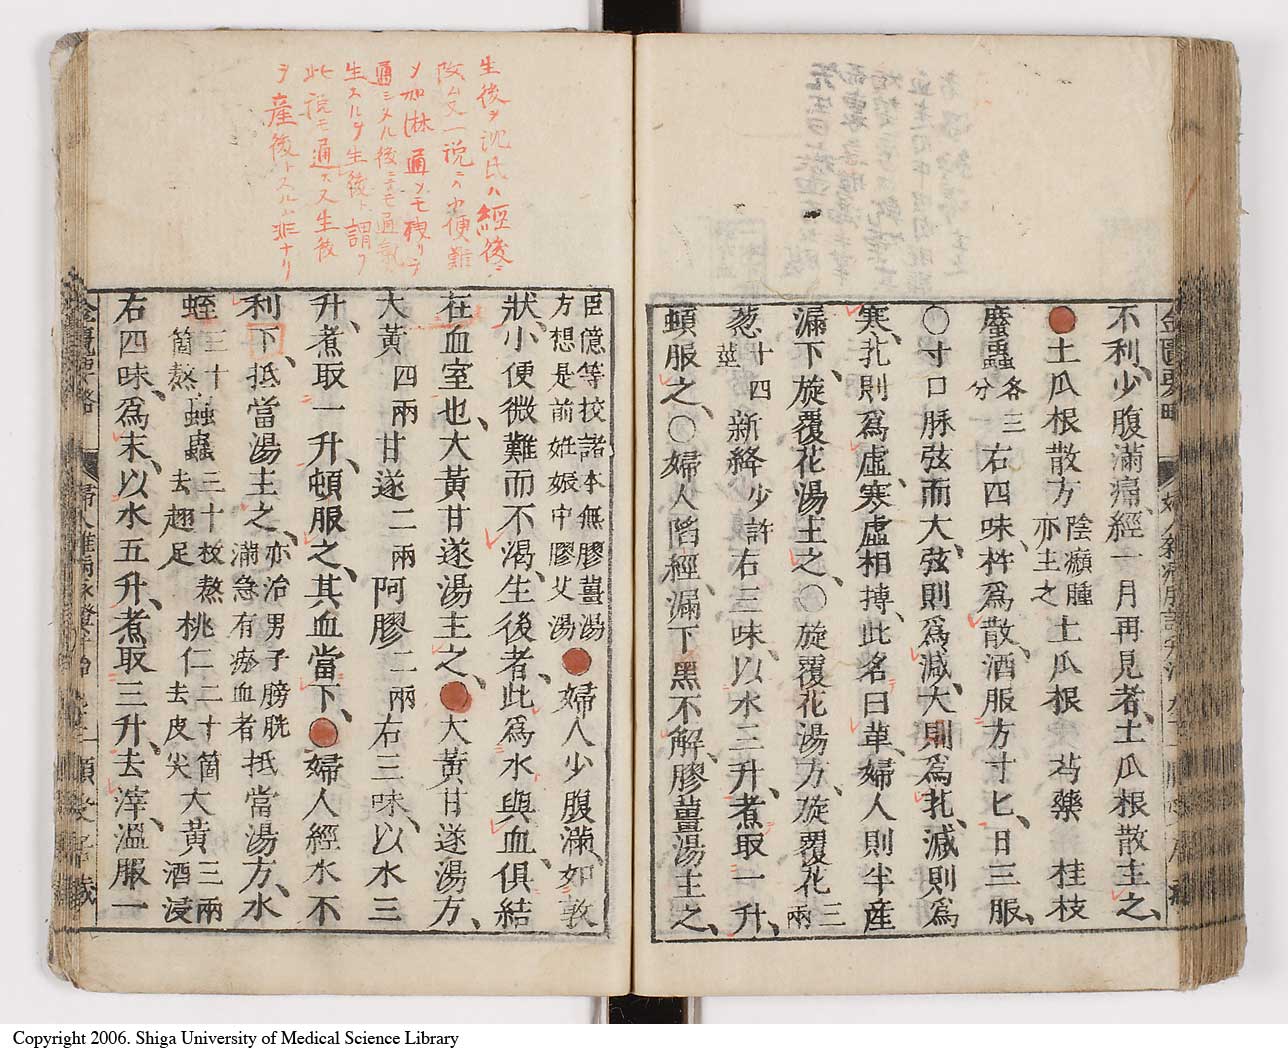 不利、少腹滿痛、經一月再見者、土瓜根散主之、
●土瓜根散方 陰㿗腫亦主之 土瓜根 芍藥 桂枝
䗪蟲各三分 右四味、杵爲散、酒服方寸匕、日三服、
○寸口脉弦而大、弦則爲減、大則爲芤、減則爲
寒、芤則爲虛、寒虛相搏、此名曰革、婦人則半產
漏下、旋覆花湯主之、○旋覆花湯方、旋覆花三兩
葱十四莖 新絳少許 右三味、以水三升、煮取一升、
頓服之、○婦人陷經、漏下黑不解、膠薑湯主之、
臣億等校諸本無膠薑湯方想是前妊娠中膠艾湯 ●婦人少腹滿、如敦
狀、小便微難而不渴、生後者、此爲水與血、俱結
在血室也、大黃甘遂湯主之、●大黃甘遂湯方、
大黃四兩 甘遂二兩 阿膠二兩 右三味、以水三
升、煮取一升、頓服之、其血當下、●婦人經水不
利下、抵當湯主之、亦治男子膀胱滿急有瘀血者 抵當湯方、水
蛭三十箇熬 䖟蟲三十枚熬去翅足 桃仁二十箇去皮尖 大黃三兩酒浸
右四味、爲末、以水五升、煮取三升、去滓、溫服一
生後ヲ沈氏ハ經後ニ
一說ニ小便難
ソ加淋通ソモ
通シメル後ニテモ通氣
生スルヲ生後ト謂フ
此說モ通ス又生後
ヲ產後トスルハ非ナリ
Copyright 2006. Shiga University of Medical Science Library